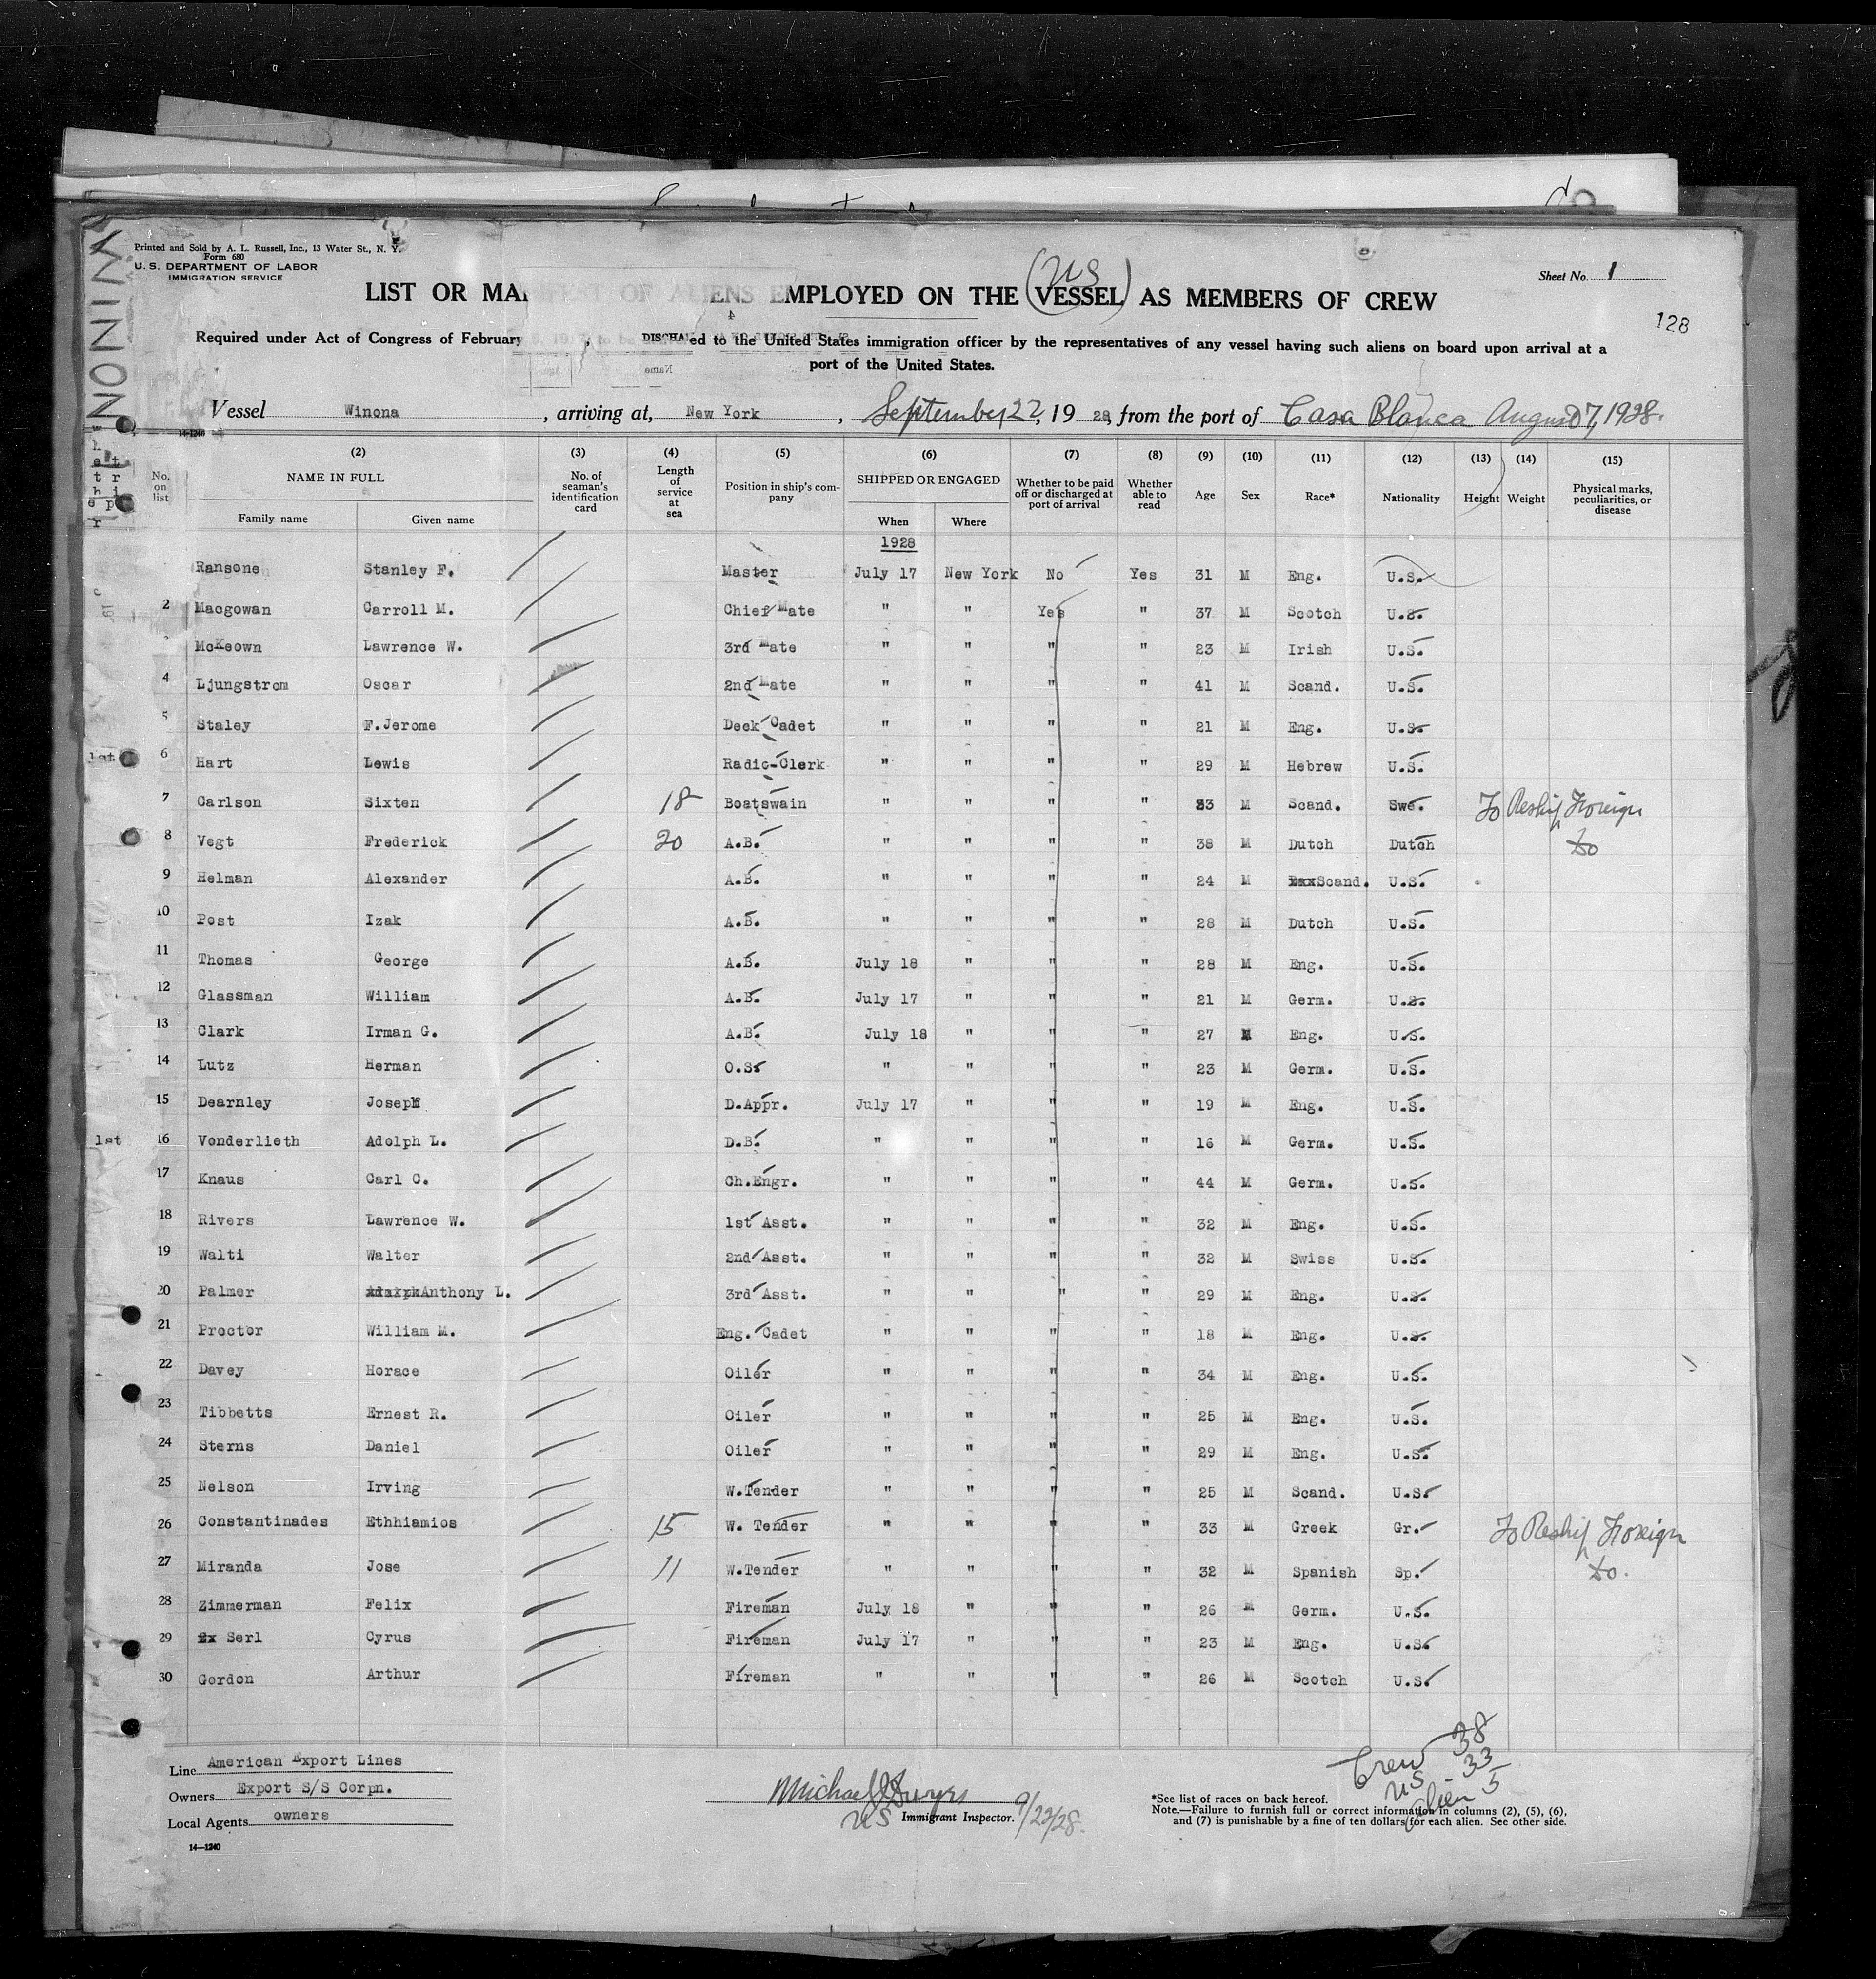 WINONA
Printed and Sold by A. L. Russell, Inc., 13 Water St., N. Y.
Form 680
U. S. DEPARTMENT OF LABOR
IMMIGRATION SERVICE
Sheet No. 1
(US)
LIST OR MANIFEST OF ALIENS EMPLOYED ON THE VESSEL AS MEMBERS OF CREW
128
Required under Act of Congress of February 5, 19 to be DISCHA ed to the United States immigration officer by the representatives of any vessel having such aliens on board upon arrival at a
port of the United States.
Vessel Winona, arriving at, New York, September 22, 19 28, from the port of Casa Blanca August 7, 1928.
14-1240
(2) (3) (4) (5) (6) (7) (8) (9) (10) (11) (12) (13) (14) (15)
No. on list NAME IN FULL No. of seaman's identification card Length of service at sea Position in ship's company SHIPPED OR ENGAGED Whether to be paid off or discharged at port of arrival Whether able to read Age Sex Race* Nationality Height Weight Physical marks, peculiarities, or disease
Family name Given name When Where
1928
Ransone Stanley F. Master July 17 New York No Yes 31 M Eng. U.S.
2 Macgowan Carroll M. Chief Mate " " Yes " 37 M Scotch U.S.
McKeown Lawrence W. 3rd Mate " " " " 23 M Irish U.S.
4 Ljungstrom Oscar 2nd Mate " " " " 41 M Scand. U.S.
5 Staley F.Jerome Deck Cadet " " " " 21 M Eng. U.S.
1st 6 Hart Lewis Radio-Clerk " " " " 29 M Hebrew U.S.
7 Carlson Sixten 18 Boatswain " " " " 33 M Scand. Swe. To Reship Foreign
8 Vegt Frederick 20 A.B. " " " " 38 M Dutch Dutch Do
9 Helman Alexander A.B. " " " " 24 M Scand. U.S.
10 Post Izak A.B. " " " " 28 M Dutch U.S.
11 Thomas George A.B. July 18 " " " 28 M Eng. U.S.
12 Glassman William A.B. July 17 " " " 21 M Germ. U.S.
13 Clark Irman G. A.B. July 18 " " " 27 M Eng. U.S.
14 Lutz Herman O.S. " " " " 23 M Germ. U.S.
15 Dearnley Joseph D.Appr. July 17 " " " 19 M Eng. U.S.
1st 16 Vonderlieth Adolph L. D.B. " " " " 16 M Germ. U.S.
17 Knaus Carl C. Ch.Engr. " " " " 44 M Germ. U.S.
18 Rivers Lawrence W. 1st Asst. " " " " 32 M Eng. U.S.
19 Walti Walter 2nd Asst. " " " " 32 M Swiss U.S.
20 Palmer Anthony L. 3rd Asst. " " " " 29 M Eng. U.S.
21 Proctor William M. Eng. Cadet " " " " 18 M Eng. U.S.
22 Davey Horace Oiler " " " " 34 M Eng. U.S.
23 Tibbetts Ernest R. Oiler " " " " 25 M Eng. U.S.
24 Sterns Daniel Oiler " " " " 29 M Eng. U.S.
25 Nelson Irving W.Tender " " " " 25 M Scand. U.S.
26 Constantinades Ethhiamios 15 W. Tender " " " " 33 M Greek Gr. To Reship Foreign
27 Miranda Jose 11 W.Tender " " " " 32 M Spanish Sp. Do.
28 Zimmerman Felix Fireman July 18 " " " 26 M Germ. U.S.
29 Serl Cyrus Fireman July 17 " " " 23 M Eng. U.S.
30 Gordon Arthur Fireman " " " " 26 M Scotch U.S.
Line American Export Lines
Owners Export S/S Corpn.
Local Agents owners
14-1240
US Immigrant Inspector. 9/22/28.
Crew 38
US 33
Alien 5
*See list of races on back hereof.
Note.—Failure to furnish full or correct information in columns (2), (5), (6),
and (7) is punishable by a fine of ten dollars for each alien. See other side.